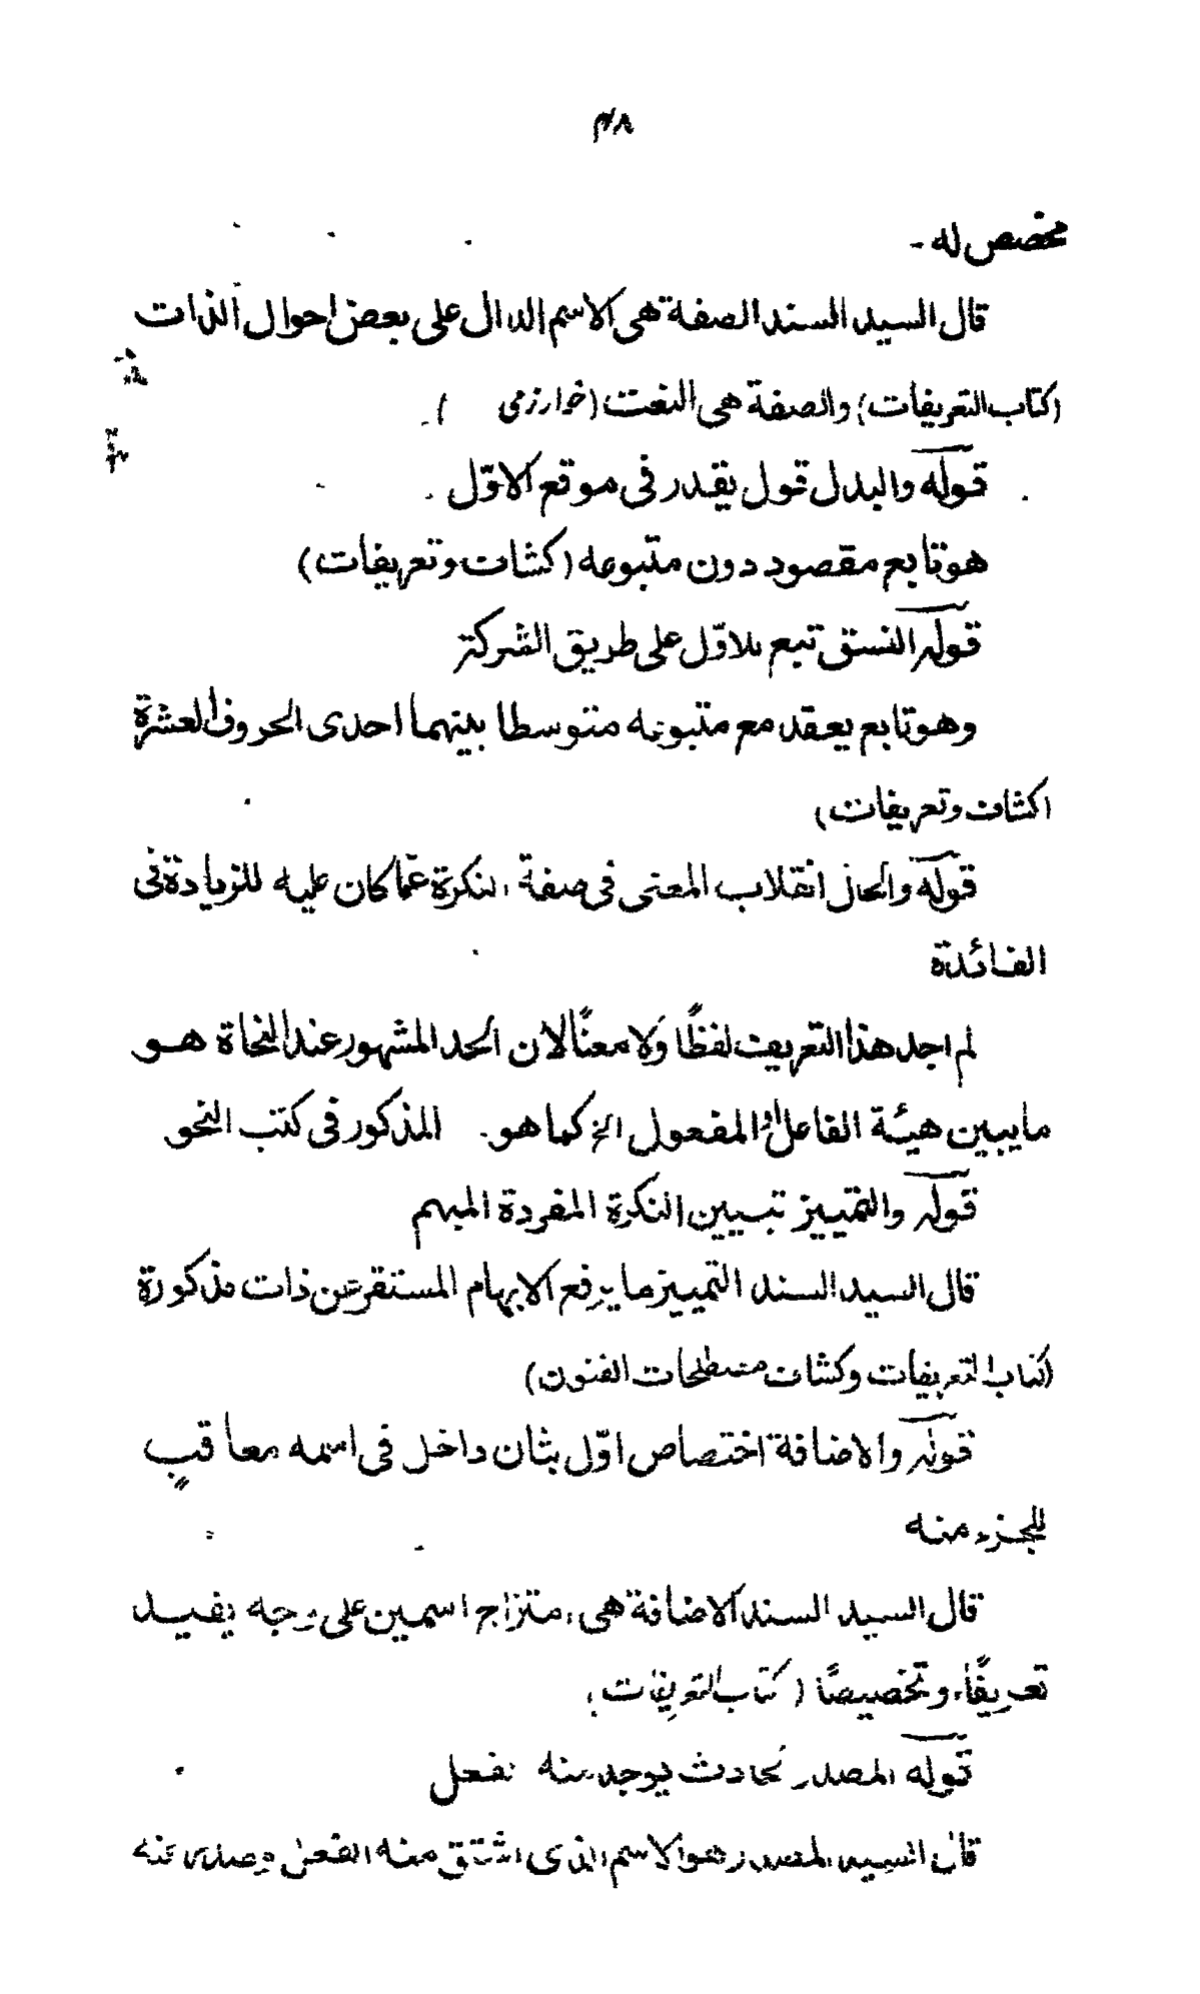 ۴۸
مخصص له -
قال السيد السند الصفة هى الاسم الدال على بعض احوال الذات
(كتاب التعريفات) والصفة هى النعت (خوارزمى )-
قوله والبدل قول يقدر فى موقع الاوّل
هو تابع مقصود دون متبوعه (كشاف وتعريفات)
قوله النسق تبع للاوّل على طريق الشركة
وهو تابع يعقد مع متبوعه متوسطا بينهما احدى الحروف العشرة
(كشاف وتعريفات)
قوله والحال انقلاب المعنى فى صفة النكرة عمّا كان عليه للزيادة فى
الفائدة
لم اجد هذا التعريف لفظًا ولا معنًا لان الحد المشهور عند النحاة هو
ما يبين هيئة الفاعل او المفعول الخ كما هو المذكور فى كتب النحو
قوله والتمييز تبيين النكرة المفردة المبهم
قال السيد السند التمييز ما يرفع الابهام المستقر عن ذات مذكورة
(كتاب التعريفات وكشاف مصطلحات الفنون)
قوله والاضافة اختصاص اوّل بثان داخل فى اسمه معاقبٍ
للجزء منه
قال السيد السند الاضافة هى امتزاج اسمين على وجه يفيد
تعريفًا وتخصيصًا (كتاب التعريفات)
قوله المصدر لحادث يوجد منه لفعل
قال السيد المصدر هو الاسم الذى اشتق منه الفعل وصدر عنه